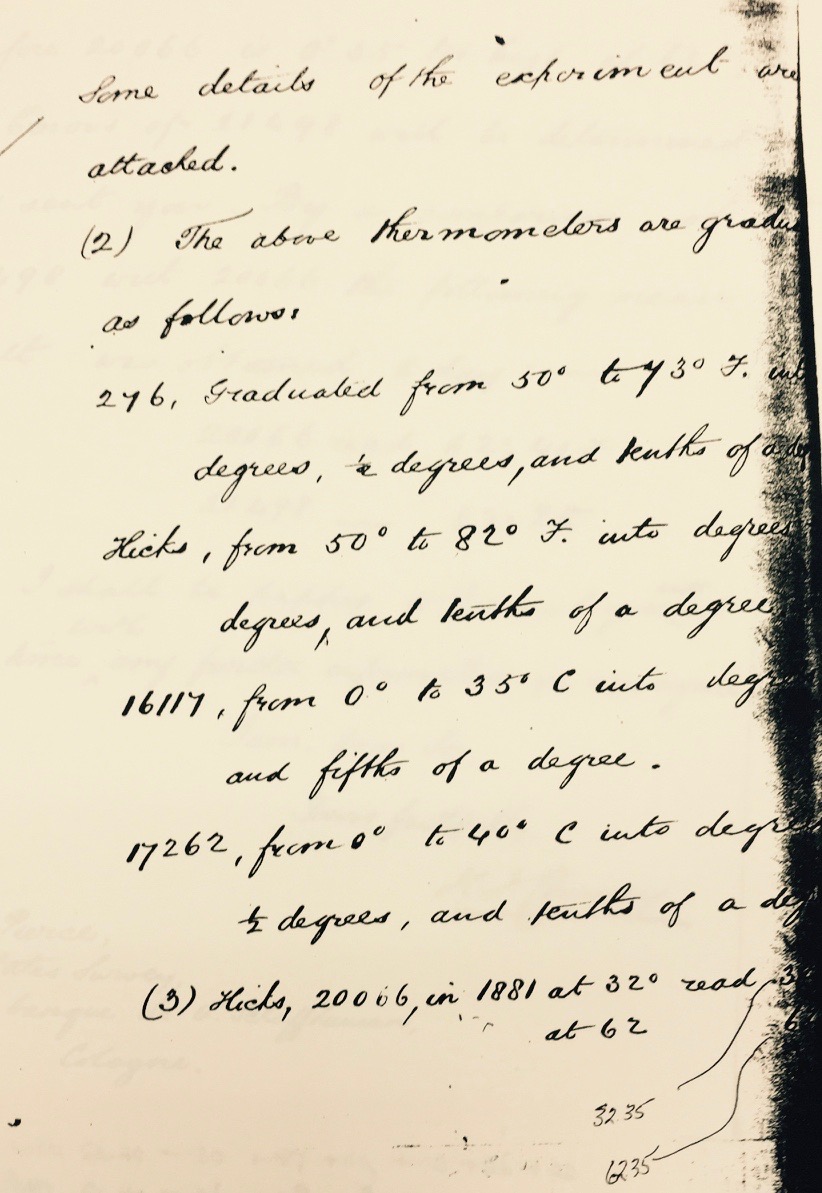 Some details of the experiment are
attached.
(2) The above thermometers are gradu
as follows:
276, Graduated from 50° to 73° F. int
degrees, ½ degrees, and tenths of a deg
Hicks, from 50° to 82° F. into degrees
degrees, and tenths of a degree
16117, from 0° to 35° C into degr
and fifths of a degree.
17262, from 0° to 40° C into degre
½ degrees, and tenths of a deg
(3) Hicks, 20066, in 1881 at 32° read 3
at 62 6
3235
6235